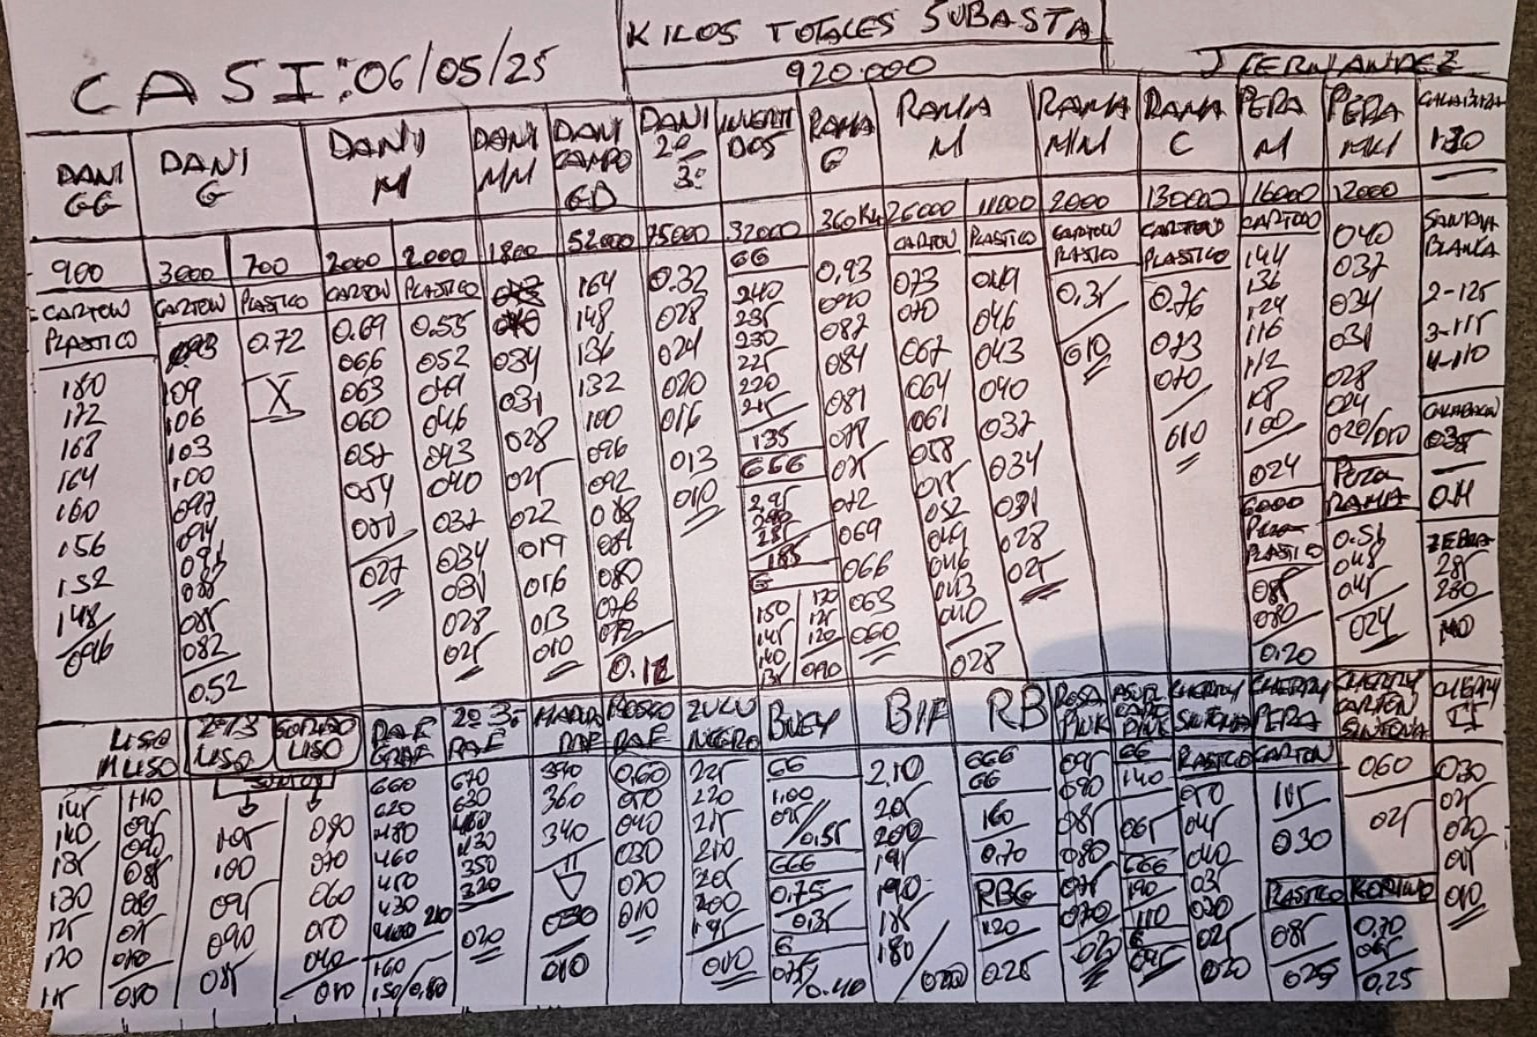 KILOS TOTALES SUBASTA
920.000
CASI: 06/05/25
J FERNANDEZ
DANI GG
900
CARTON
PLASTICO
180
172
168
164
160
156
152
148
096
DANI G
3000
CARTON
109
106
103
100
097
094
091
088
085
082
0.52
700
PLASTICO
0.72
X
DANI M
2000
CARTON
0.69
066
063
060
057
054
027
2.000
PLASTICO
0.55
052
049
046
043
040
037
034
031
028
025
DANI MM
1800
034
031
028
025
022
019
016
013
010
DANI CAMPO GD
52000
164
148
136
132
100
096
092
088
084
080
076
072
0.12
DANI 2º 3º
75000
0.32
028
024
020
016
013
010
INVERTIDOS
32000
GG
240
235
230
225
220
215
135
GGG
295
290
285
185
G
150
145
140
135
130
125
120
090
RAMA G
360 Kg
0,93
090
087
084
081
078
075
072
069
066
063
060
RAMA M
26000
CARTON
073
070
067
064
061
058
055
052
049
046
043
040
028
11000
PLASTICO
049
046
043
040
037
034
031
028
025
RAMA M/M
2000
CARTON
PLASTICO
0.35
010
RAMA C
130000
CARTON
PLASTICO
0.76
073
070
010
PERA M
16000
CARTON
144
136
124
116
112
108
100
024
6000
PERA
PLASTICO
085
080
0.20
PERA MM
12000
040
037
034
031
028
024
020/010
PERA
RAMA
0.51
048
045
024
CALABAZA
1-30
SANTANA
BLANCA
2-125
3-115
4-110
CALABACIN
035
0.11
ZEBRA
285
280
140
LISO
M LISO
145
140
135
130
125
120
115
110
095
090
085
080
075
070
050
2º 3
LISO
105
100
095
090
085
LISO
080
070
060
050
040
010
RAF
GRAF
660
620
480
460
450
430
400 210
160
150/0.80
2º 3º
RAF
670
630
480
430
350
320
020
MADUR
RAF
390
360
340
030
010
RAF
0,60
050
040
030
020
010
ZULU
NEGRO
225
220
215
210
205
200
195
010
BUEY
GG
1.00
095/0.55
GGG
0,75
0.35
G
075/0.40
BIF
2.10
205
200
195
190
185
180
020
RB
GGG
GG
160
0.70
RBG
120
0.25
ROSA
PINK
095
090
085
080
075
070
020
ASUR
PINK
GG
140
065
GGG
190
110
G
095
CHERRY
SINTONIA
PLASTICO
050
045
040
035
030
025
020
CHERRY
PERA
CARTON
105
030
PLASTICO
085
025
CHERRY
CARTON
SINTONIA
060
025
KOPINO
0,70
065
0,25
CHERRY
II
030
025
020
015
010